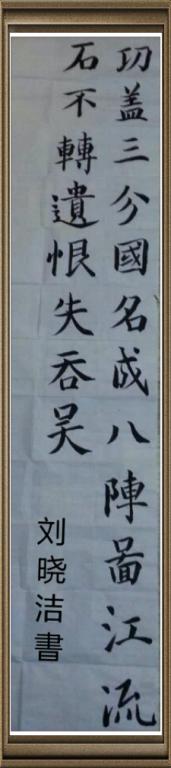 功盖三分國名成八陣啚江流
石不轉遺恨失吞吴
刘晓洁書